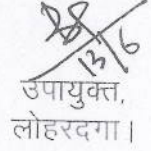 13/6
उपायुक्त,
लोहरदगा।